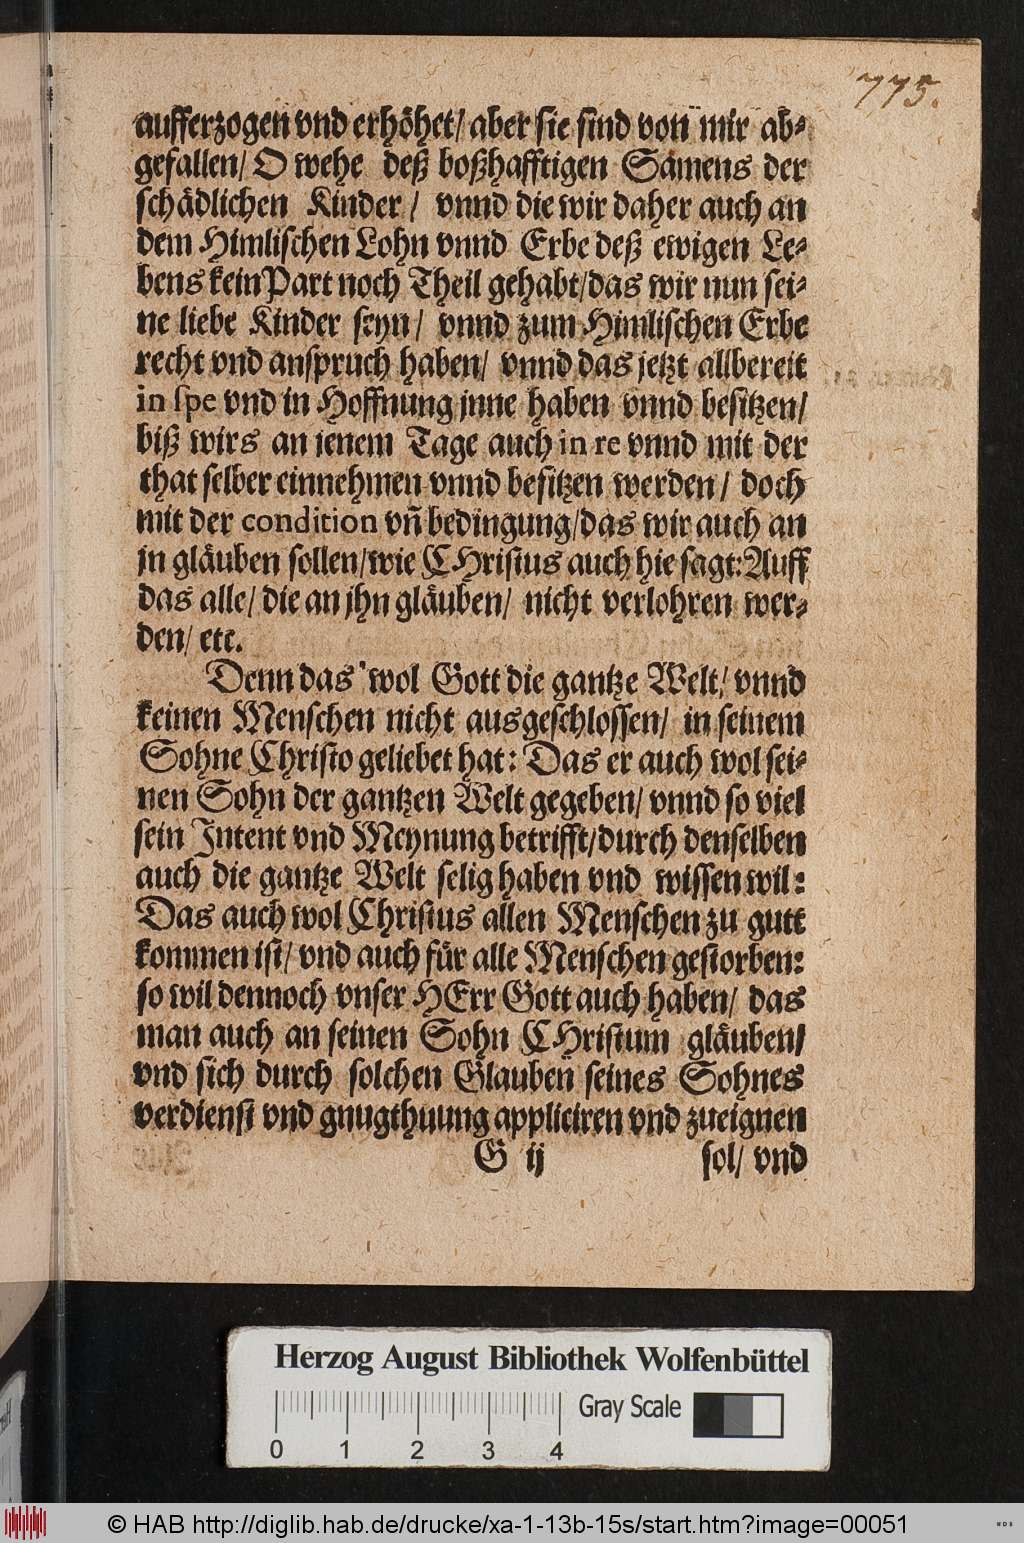 775.
aufferzogen vnd erhöhet/ aber sie sind von mir ab-
gefallen/ O wehe deß boßhafftigen Samens der
schädlichen Kinder/ vnnd die wir daher auch an
dem Himlischen Lohn vnnd Erbe deß ewigen Le-
bens kein Part noch Theil gehabt/das wir nun sei-
ne liebe Kinder seyn/ vnnd zum Himlischen Erbe
recht vnd anspruch haben/ vnnd das jetzt allbereit
in spe vnd in Hoffnung jnne haben vnnd besitzen/
biß wirs an jenem Tage auch in re vnnd mit der
that selber einnehmen vnnd besitzen werden/ doch
mit der condition vñ bedingung/das wir auch an
jn gläuben sollen/wie CHristus auch hie sagt:Auff
das alle/ die an jhn gläuben/ nicht verlohren wer-
den/ etc.
Denn das wol Gott die gantze Welt/ vnnd
keinen Menschen nicht ausgeschlossen/ in seinem
Sohne Christo geliebet hat: Das er auch wol sei-
nen Sohn der gantzen Welt gegeben/ vnnd so viel
sein Intent vnd Meynung betrifft/durch denselben
auch die gantze Welt selig haben vnd wissen wil:
Das auch wol Christus allen Menschen zu gutt
kommen ist/ vnd auch für alle Menschen gestorben:
so wil dennoch vnser HErr Gott auch haben/ das
man auch an seinen Sohn CHristum gläuben/
vnd sich durch solchen Glauben seines Sohnes
verdienst vnd gnugthuung appliciren vnd zueignen
G ij sol/ vnd
Herzog August Bibliothek Wolfenbüttel
Gray Scale
0 1 2 3 4
© HAB http://diglib.hab.de/drucke/xa-1-13b-15s/start.htm?image=00051